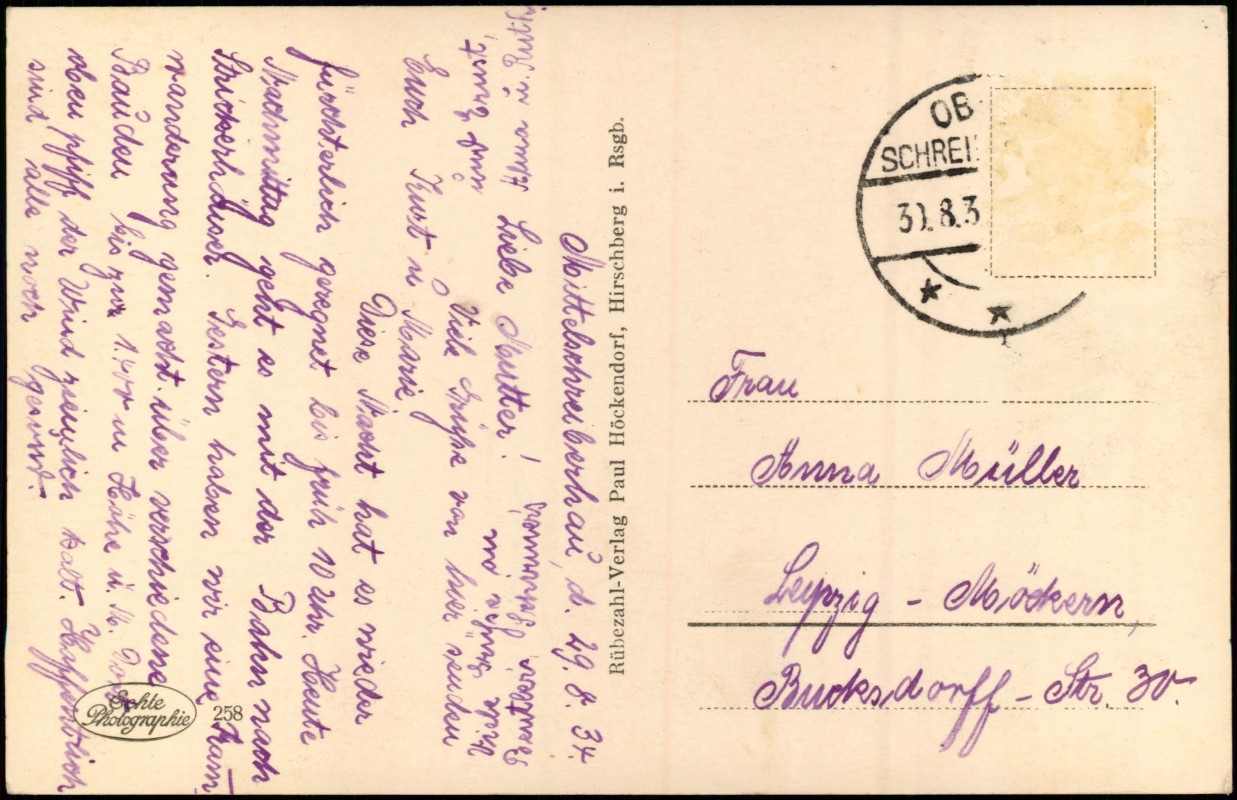 Mittelschreiberhau, d. 29. 8. 34.
Liebe Mutter!
Viele Grüße von hier senden
Euch Kurt u. Marie
Diese Nacht hat es wieder
fürchterlich geregnet bis früh 10 Uhr. Heute
Nachmittag geht es mit der Bahn nach
Strickerhäuser. Gestern haben wir eine Kam-
wanderung gemacht über verschiedene
Bauden bis zur 1.400 m Höhe ü. M. Dort
oben pfiff der Wind ziemlich kalt. Hoffentlich
sind alle noch gesund.
Viele Grüße an
und
Anna u.
Rübezahl-Verlag Paul Höckendorf, Hirschberg i. Rsgb.
Echte
Photographie
258
OB
SCHREI
8.3
Frau
Anna Müller
Leipzig - Möckern,
Bucksdorff - Str. 30.